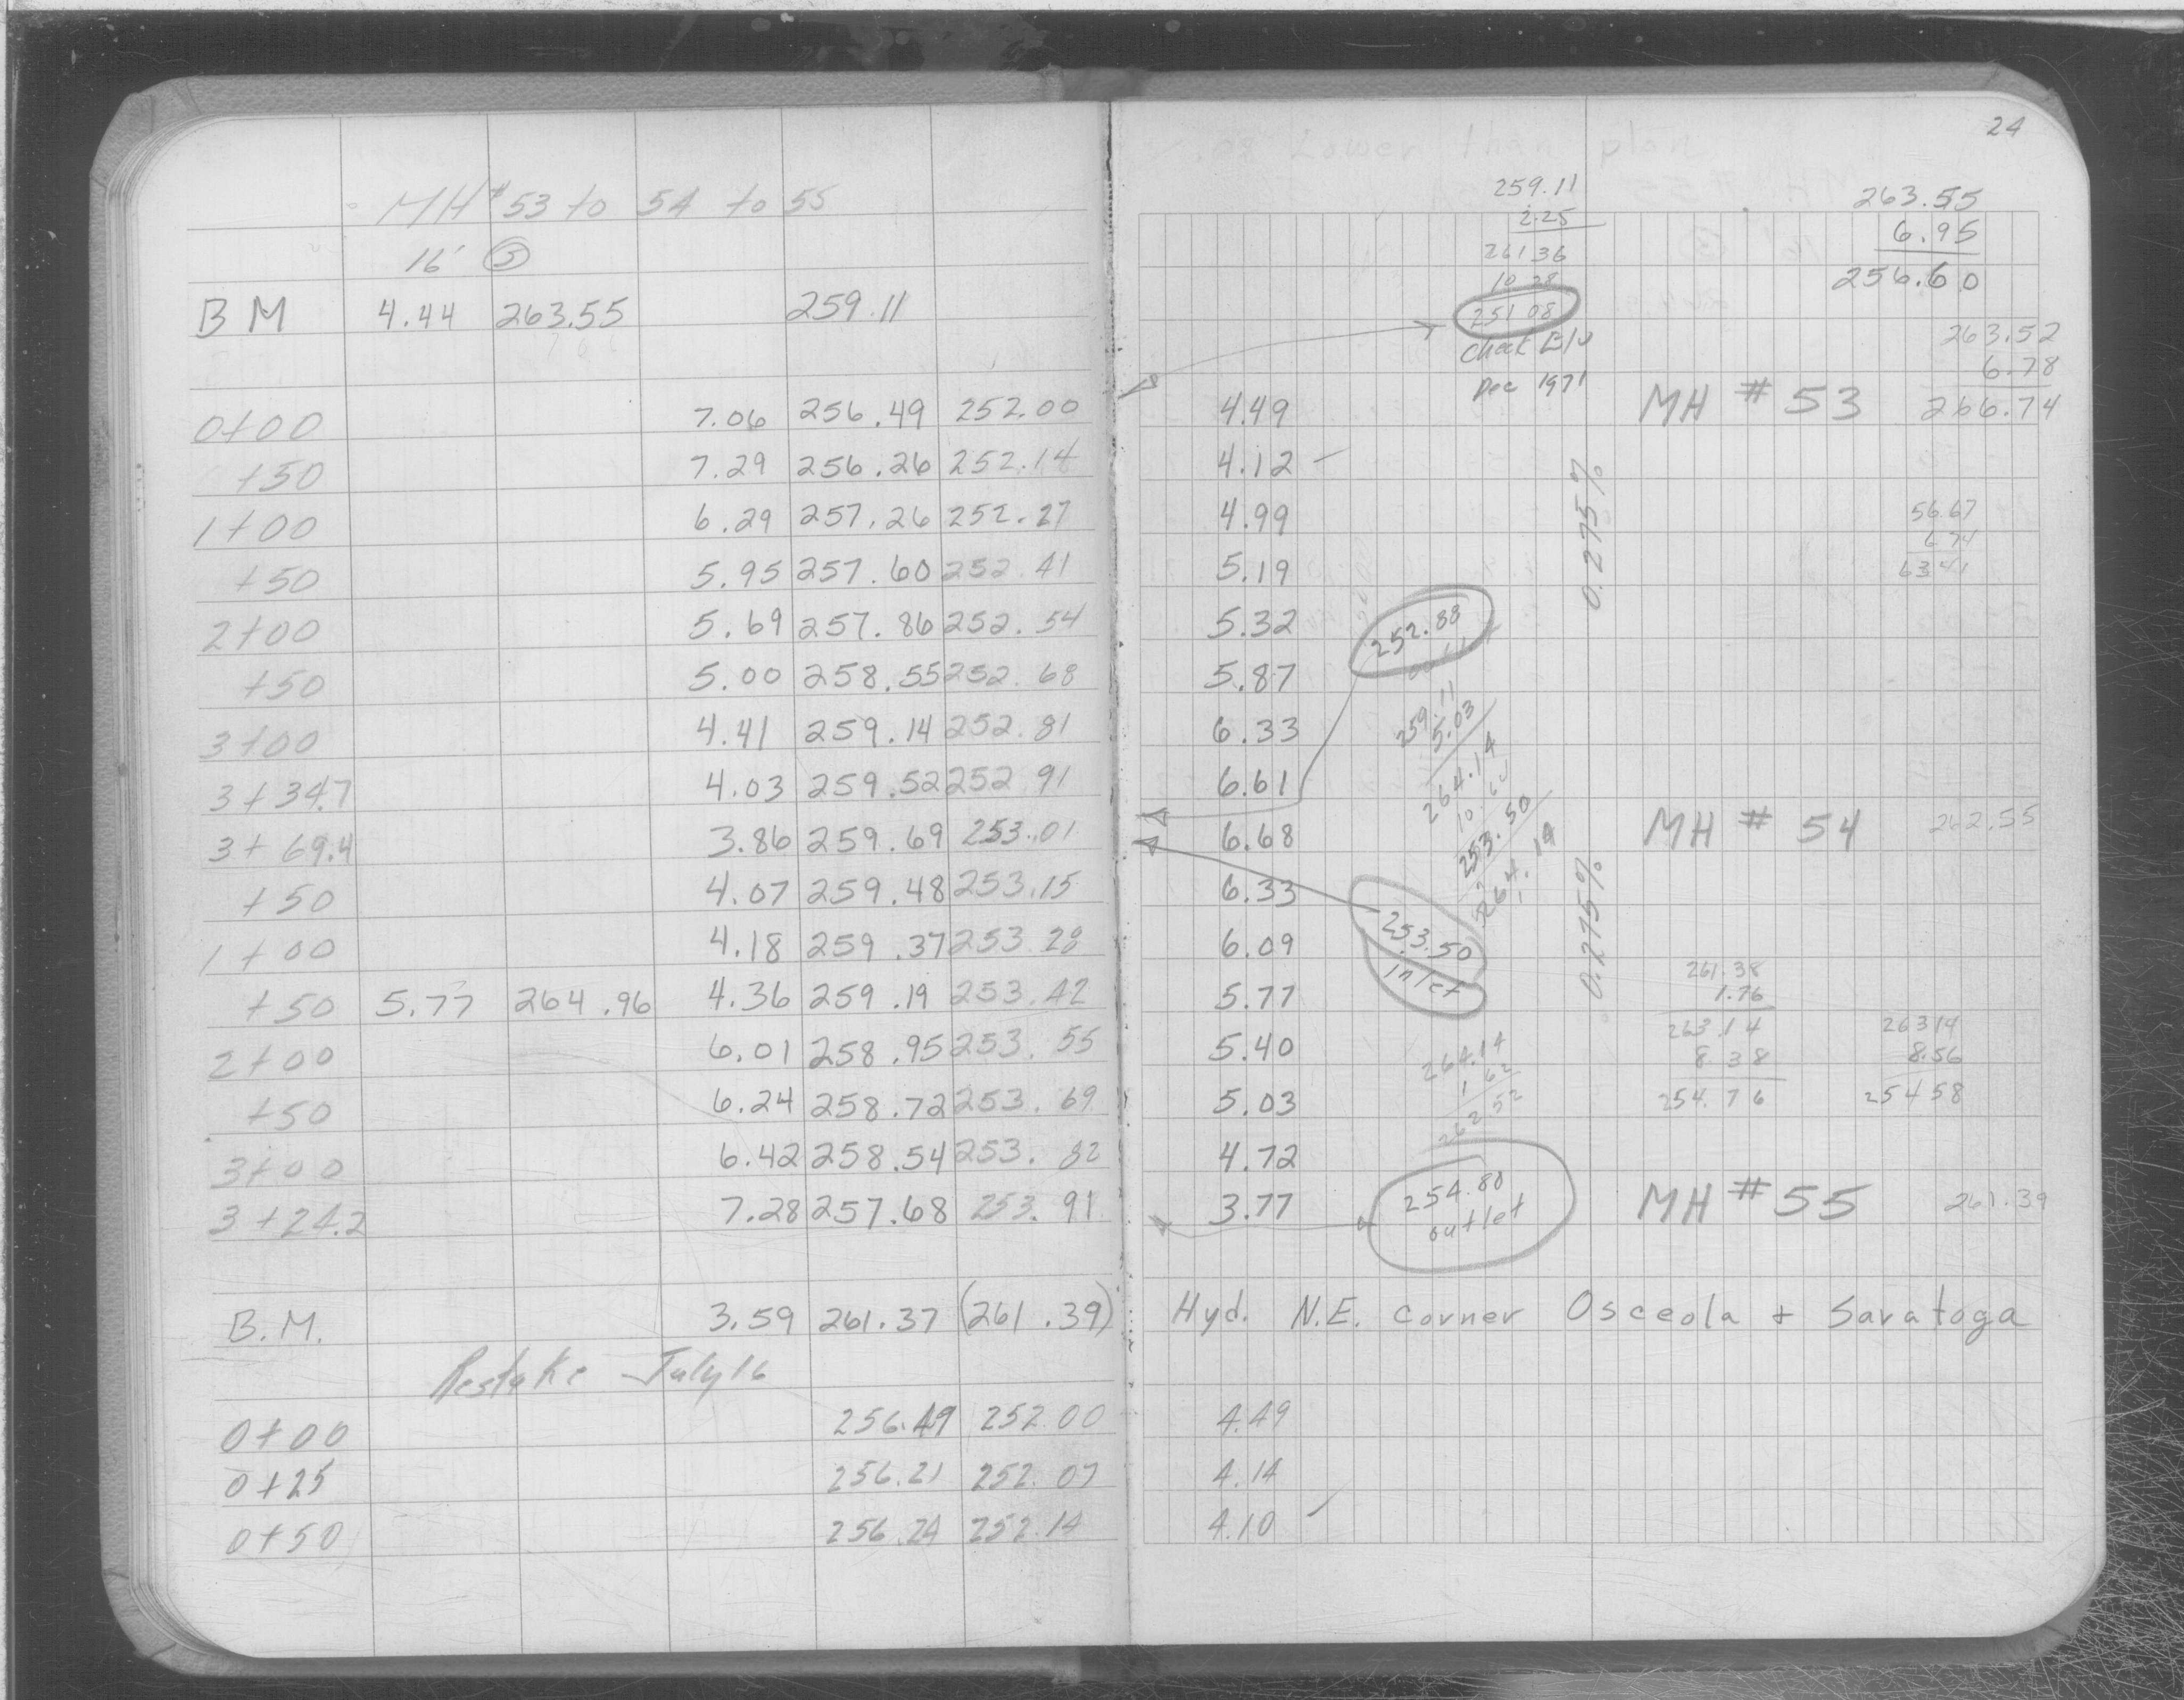 MH #53 to 54 to 55
16'
BM 4.44 263.55 259.11
0+00 7.06 256.49 252.00
+50 7.29 256.26 252.14
1+00 6.29 257.26 252.27
+50 5.95 257.60 252.41
2+00 5.69 257.86 252.54
+50 5.00 258.55 252.68
3+00 4.41 259.14 252.81
3+34.7 4.03 259.52 252 91
3+69.4 3.86 259.69 253.01
+50 4.07 259.48 253.15
1+00 4.18 259.37 253.28
+50 5.77 264.96 4.36 259.19 253.42
2+00 6.01 258.95 253.55
+50 6.24 258.72 253.69
3+00 6.42 258.54 253.82
3+24.2 7.28 257.68 253.91
B.M. 3.59 261.37 (261.39)
Restake July 16
0+00 256.49 252.00
0+25 256.21 252.07
0+50 256.24 252.14
24
.08 Lower than plan
259.11
2.25
261 36
10 28
251 08
Check Elv
Dec 1971
263.55
6.95
256.60
263.52
6.78
266.74
4.49 MH # 53
4.12 –
4.99
5.19
5.32
5.87
6.33
6.61
6.68 MH # 54 262.55
6.33
6.09
5.77
5.40
5.03
4.72
3.77 MH # 55 261.39
0.275%
56.67
6 74
63 41
252.88
259.11
5.03
264.14
253.50
264.14
0.275%
253.50
inlet
264.14
1 62
262 52
261.38
1.76
263.14
8.38
254.76
263 14
8.56
254 58
254.80
outlet
Hyd. N.E. corner Osceola + Saratoga
4.49
4.14
4.10